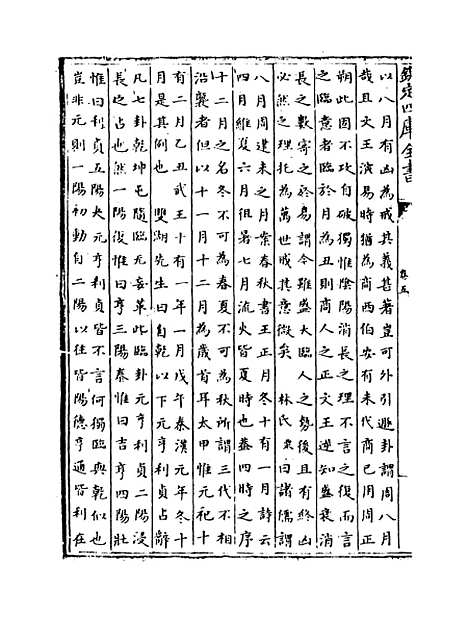 欽定四庫全書
卷五
以八月有凶為戒其義甚著豈可外引遯卦謂周八月
哉且文王演易時猶為商西伯安有未代商已用周正
朔此固不攻自破獨惟陰陽消長之理不言之復而言
之臨意者臨於月為丑則商人之正文王逆知盛衰消
長之數寄之於易謂今雖盛大臨人之勢後且有終凶
必然之理托為萬世戒其意微矣 林氏栗曰諸儒謂
八月周建未之月案春秋書王正月冬十有一月詩云
四月維夏六月徂暑七月流火皆夏時也葢四時之序
十二月之名冬不可為春夏不可為秋所謂三代不相
沿襲者但以十一月十二月為歲首耳太甲惟元祀十
有二月乙丑武王十有一年一月戊午秦漢元年冬十
月是其例也 雙湖先生曰自乾以下元亨利貞占辭
凡七卦乾坤屯隨臨无妄革此臨卦元亨利貞二陽浸
長之占也然一陽復惟曰亨三陽泰惟曰吉亨四陽壯
惟曰利貞五陽夬元亨利貞皆不言何獨臨與乾似也
豈非元則一陽初動自二陽以往皆陽德亨通皆利在